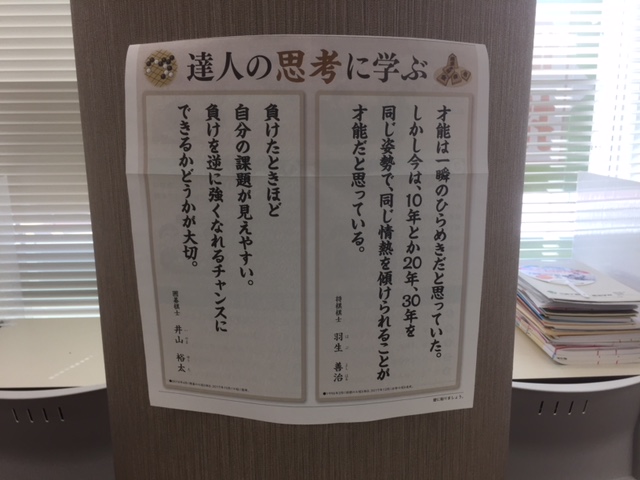 達人の思考に学ぶ
才能は一瞬のひらめきだと思っていた。
しかし今は、10年とか20年、30年を
同じ姿勢で、同じ情熱を傾けられることが
才能だと思っている。
将棋棋士 羽生 善治
負けたときほど
自分の課題が見えやすい。
負けを逆に強くなれるチャンスに
できるかどうかが大切。
囲碁棋士 井山 裕太